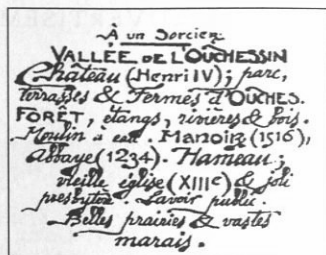 À un Sorcier
VALLÉE DE L'OUCHESSIN
Château (Henri IV); parc,
terrasses & Fermes d'OUCHES.
FORÊT, étangs, rivières & bois.
Moulin à eau. Manoir (1516),
Abbaye (1234). Hameau;
vieille église (XIIIe) & joli
presbytère. Lavoir public.
Belles prairies & vastes
marais.